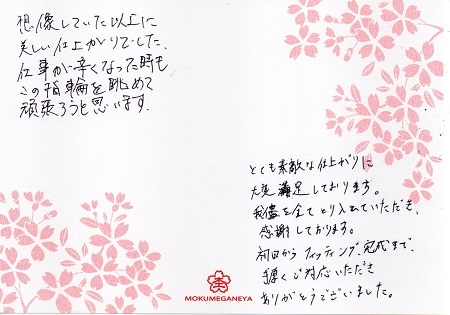 想像していた以上に
美しい仕上がりでした。
仕事が辛くなった時も
この指輪を眺めて
頑張ろうと思います。
とても素敵な仕上がりに
大変満足しております。
我儘を全てとり入れていただき、
感謝しております。
初回からフィッティング、完成まで、
手厚くご対応いただき
ありがとうございました。
MOKUMEGANEYA